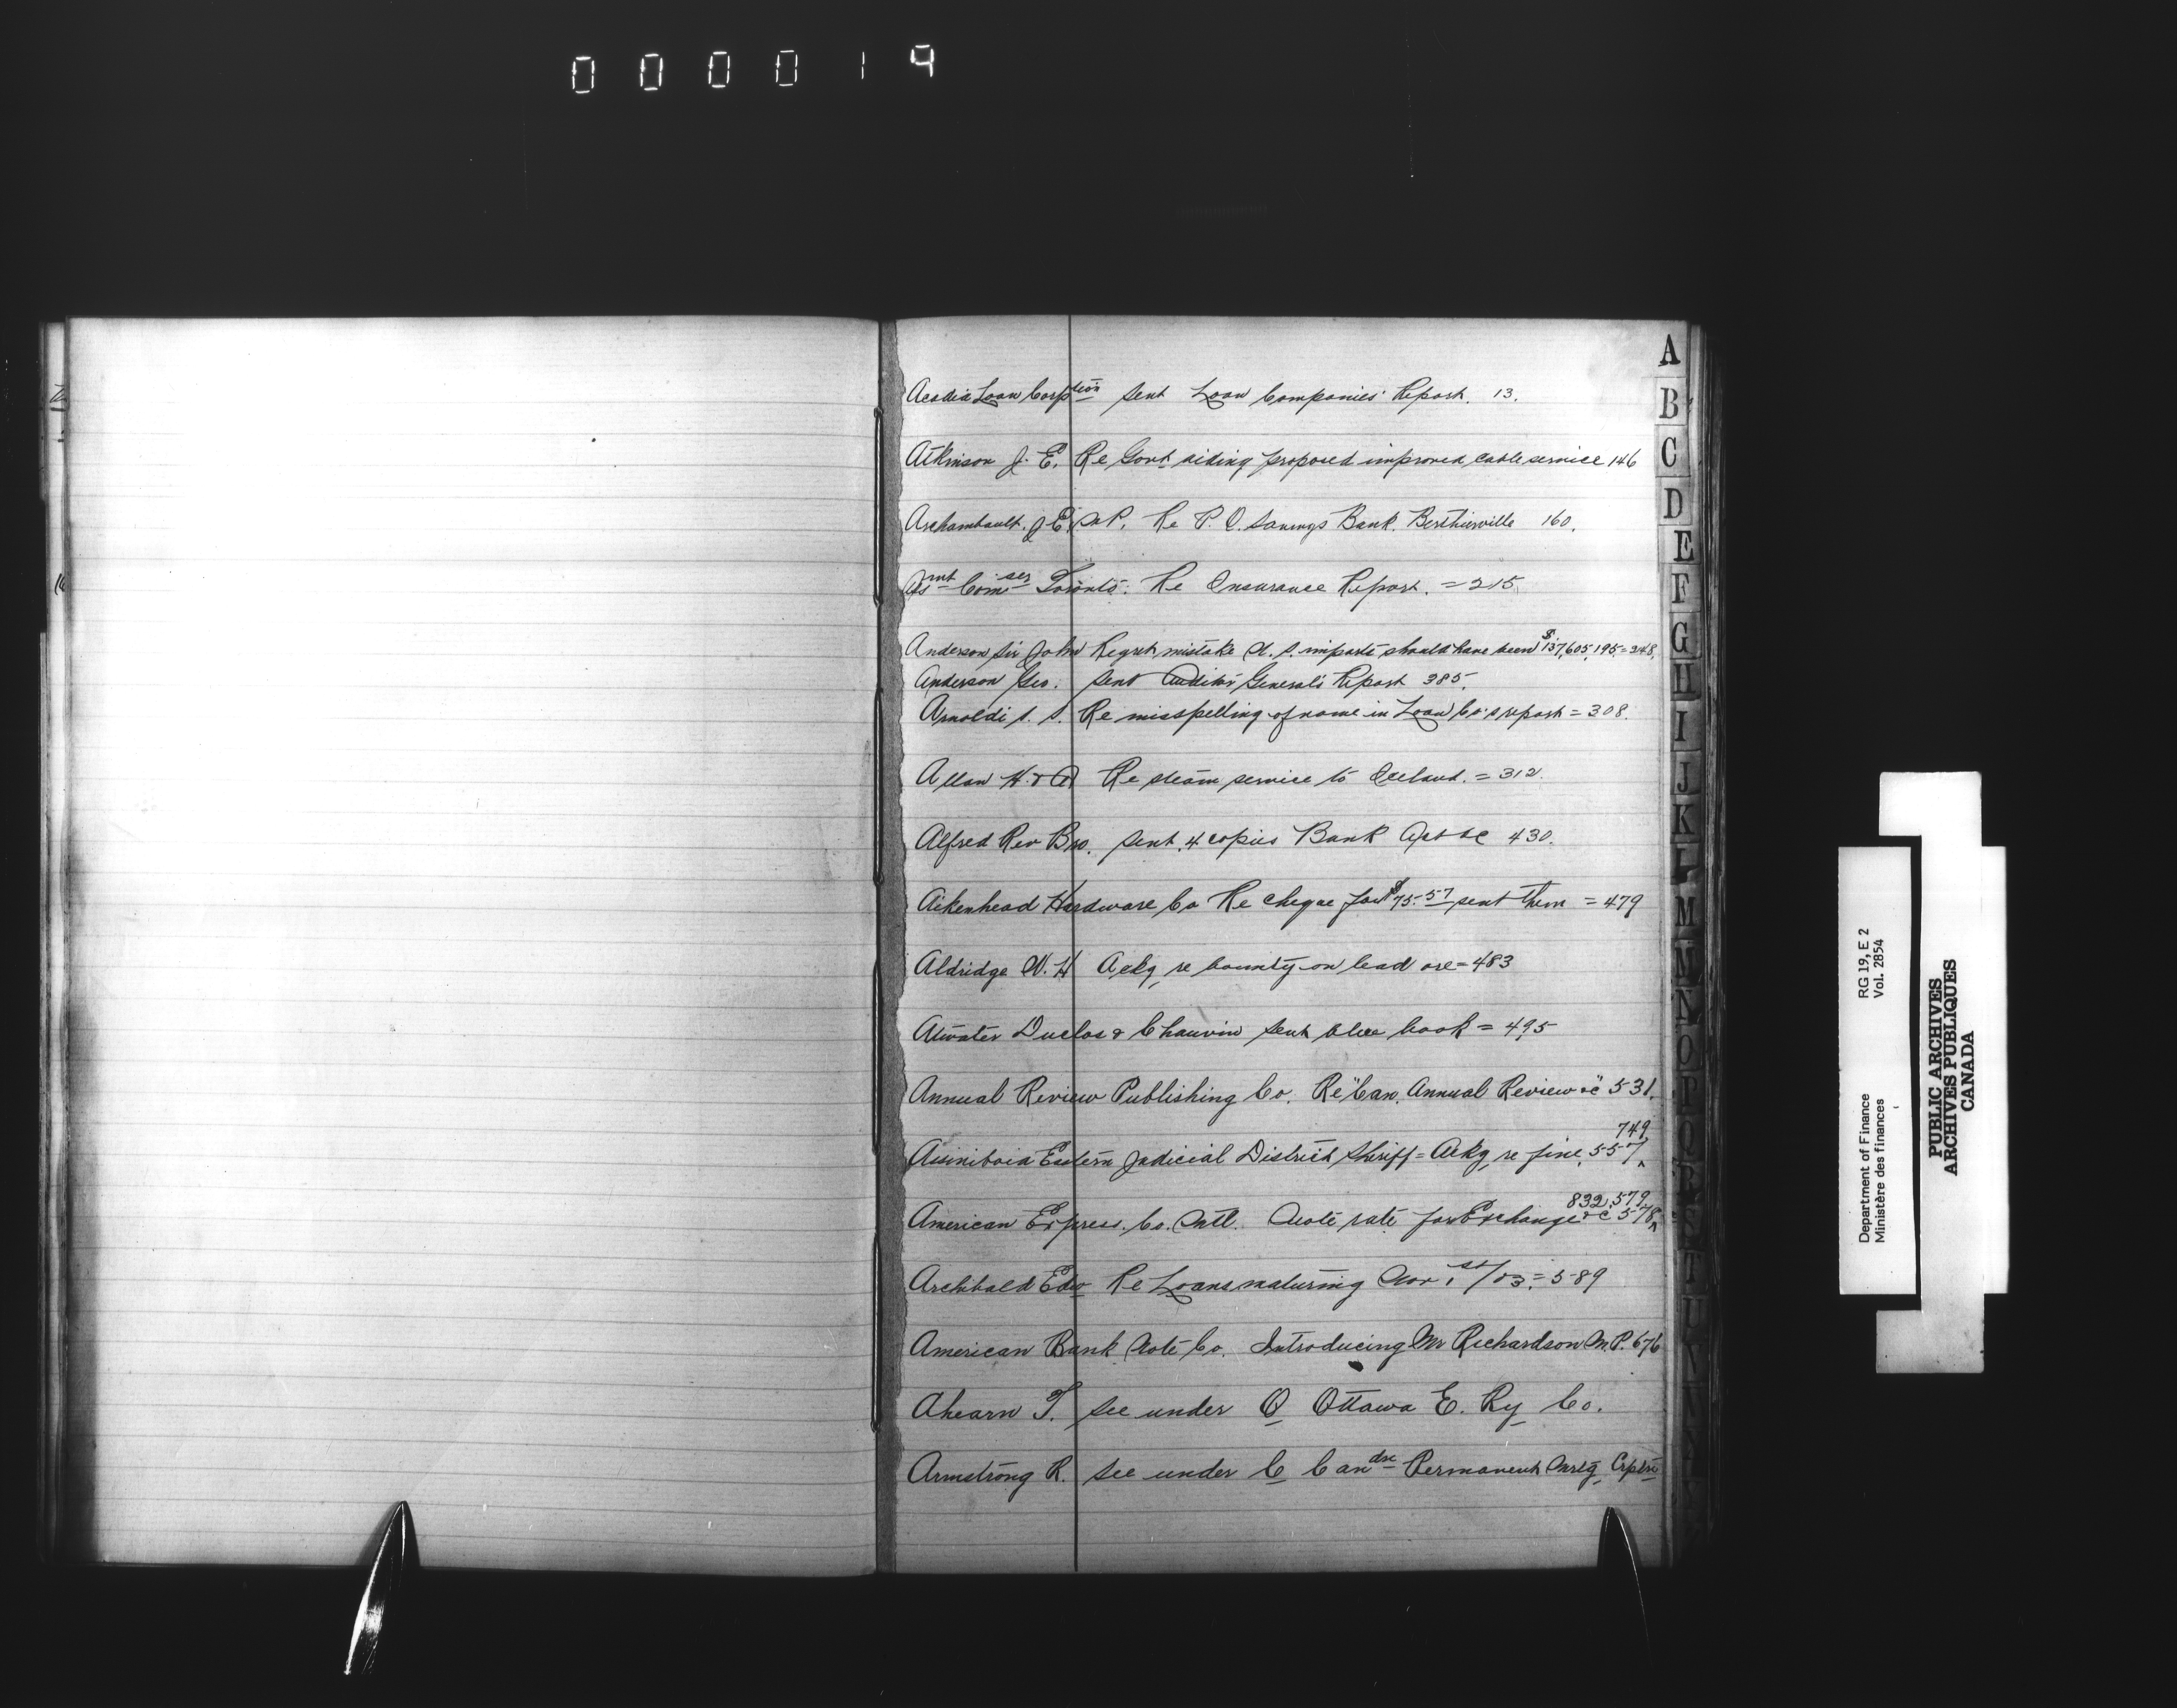 000019
Acadia Loan Corption sent Loan Companies' Report. 13.
Atkinson J. E. Re Govt aiding proposed improved cable service 146
Archambault. J E. M.P. Re P. O. Savings Bank. Berthierville 160.
Asmnt Comser Toronto. Re Insurance Report. = 215
Anderson Sir John Regret mistake U. S. imports should have been $137,605,195 = 248.
Anderson Geo. sent Auditor General's Report 385.
Arnoldi S. S. Re misspelling of name in Loan Co's report = 308.
Allan H. & A Re steam service to Ireland. = 312.
Alfred Rev Bro. sent 4 copies Bank Act &c 430.
Aikenhead Hardware Co Re cheque for $75.57 sent them = 479
Aldridge W. H Ackg re bounty on lead ore = 483
Atwater Duclos & Chauvin sent blue book = 495
Annual Review Publishing Co. Re "Can. Annual Review &c" 531.
749
Assiniboia Eastern Judicial District Sheriff = Ackg re fine. 557
832, 579
American Express. Co. Mtl. Quote rate for Exchange &c 578
Archibald Edw Re Loans maturing Nov 1st/03. = 589
American Bank Note Co. Introducing Mr Richardson M.P. 676
Ahearn T. see under O Ottawa E. Ry Co.
Armstrong R. see under C Candn Permanent Mrtg Crptn
A
B
C
D
E
F
G
H
I
J
K
L
M
N
O
P
Q
R
S
T
U
Department of Finance RG 19, E 2
Ministère des finances Vol. 2854
PUBLIC ARCHIVES
ARCHIVES PUBLIQUES
CANADA